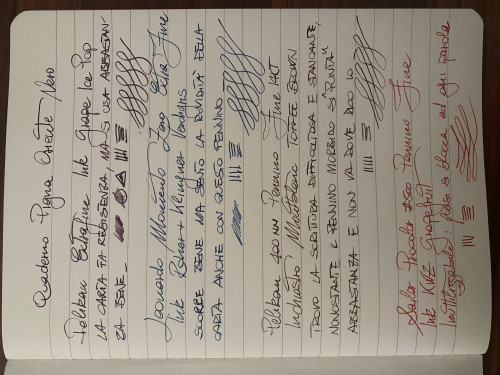 Quaderno Pigna Cliente Nero
Pelikan Extrafine Ink Grape Ice Pop
LA CARTA FA RESISTENZA MA SI USA ABBASTAN-
ZA BENE -
Leonardo Momento Zero Extra Fine
Ink Rohrer + Klingner Verdigris
SCORRE BENE MA SENTO LA RUVIDITÀ DELLA
CARTA ANCHE CON QUESTO PENNINO
Pelikan 400 NN Pennino Fine
Inchiostro Montblanc TOFFEE BROWN
TROVO LA SCRITTURA DIFFICOLTOSA E STANCANTE,
NONOSTANTE IL PENNINO MORBIDO SI "PUNTA"
ABBASTANZA E NON VA DOVE DICO IO
Sailor Procolor 500 Pennino Fine
Ink KWZ Grapefruit
Inutilizzabile, quasi si blocca ad ogni parola